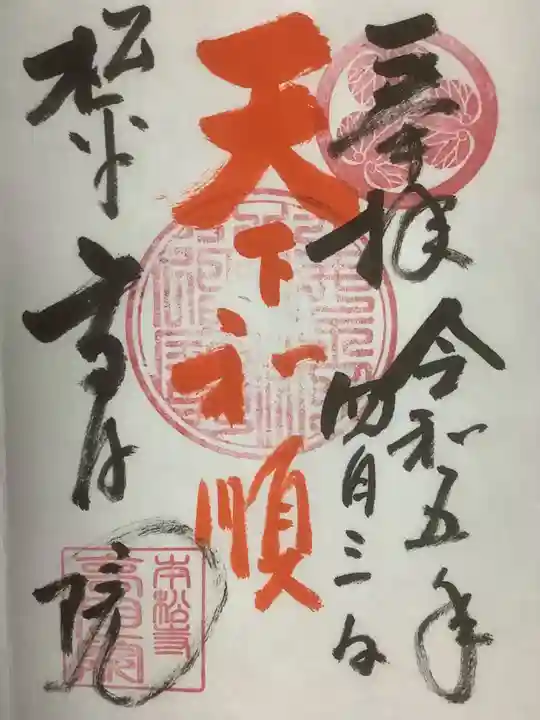 奉拝 令和五年
四月三日
天下和順
松平 高月院
本松山
高月院